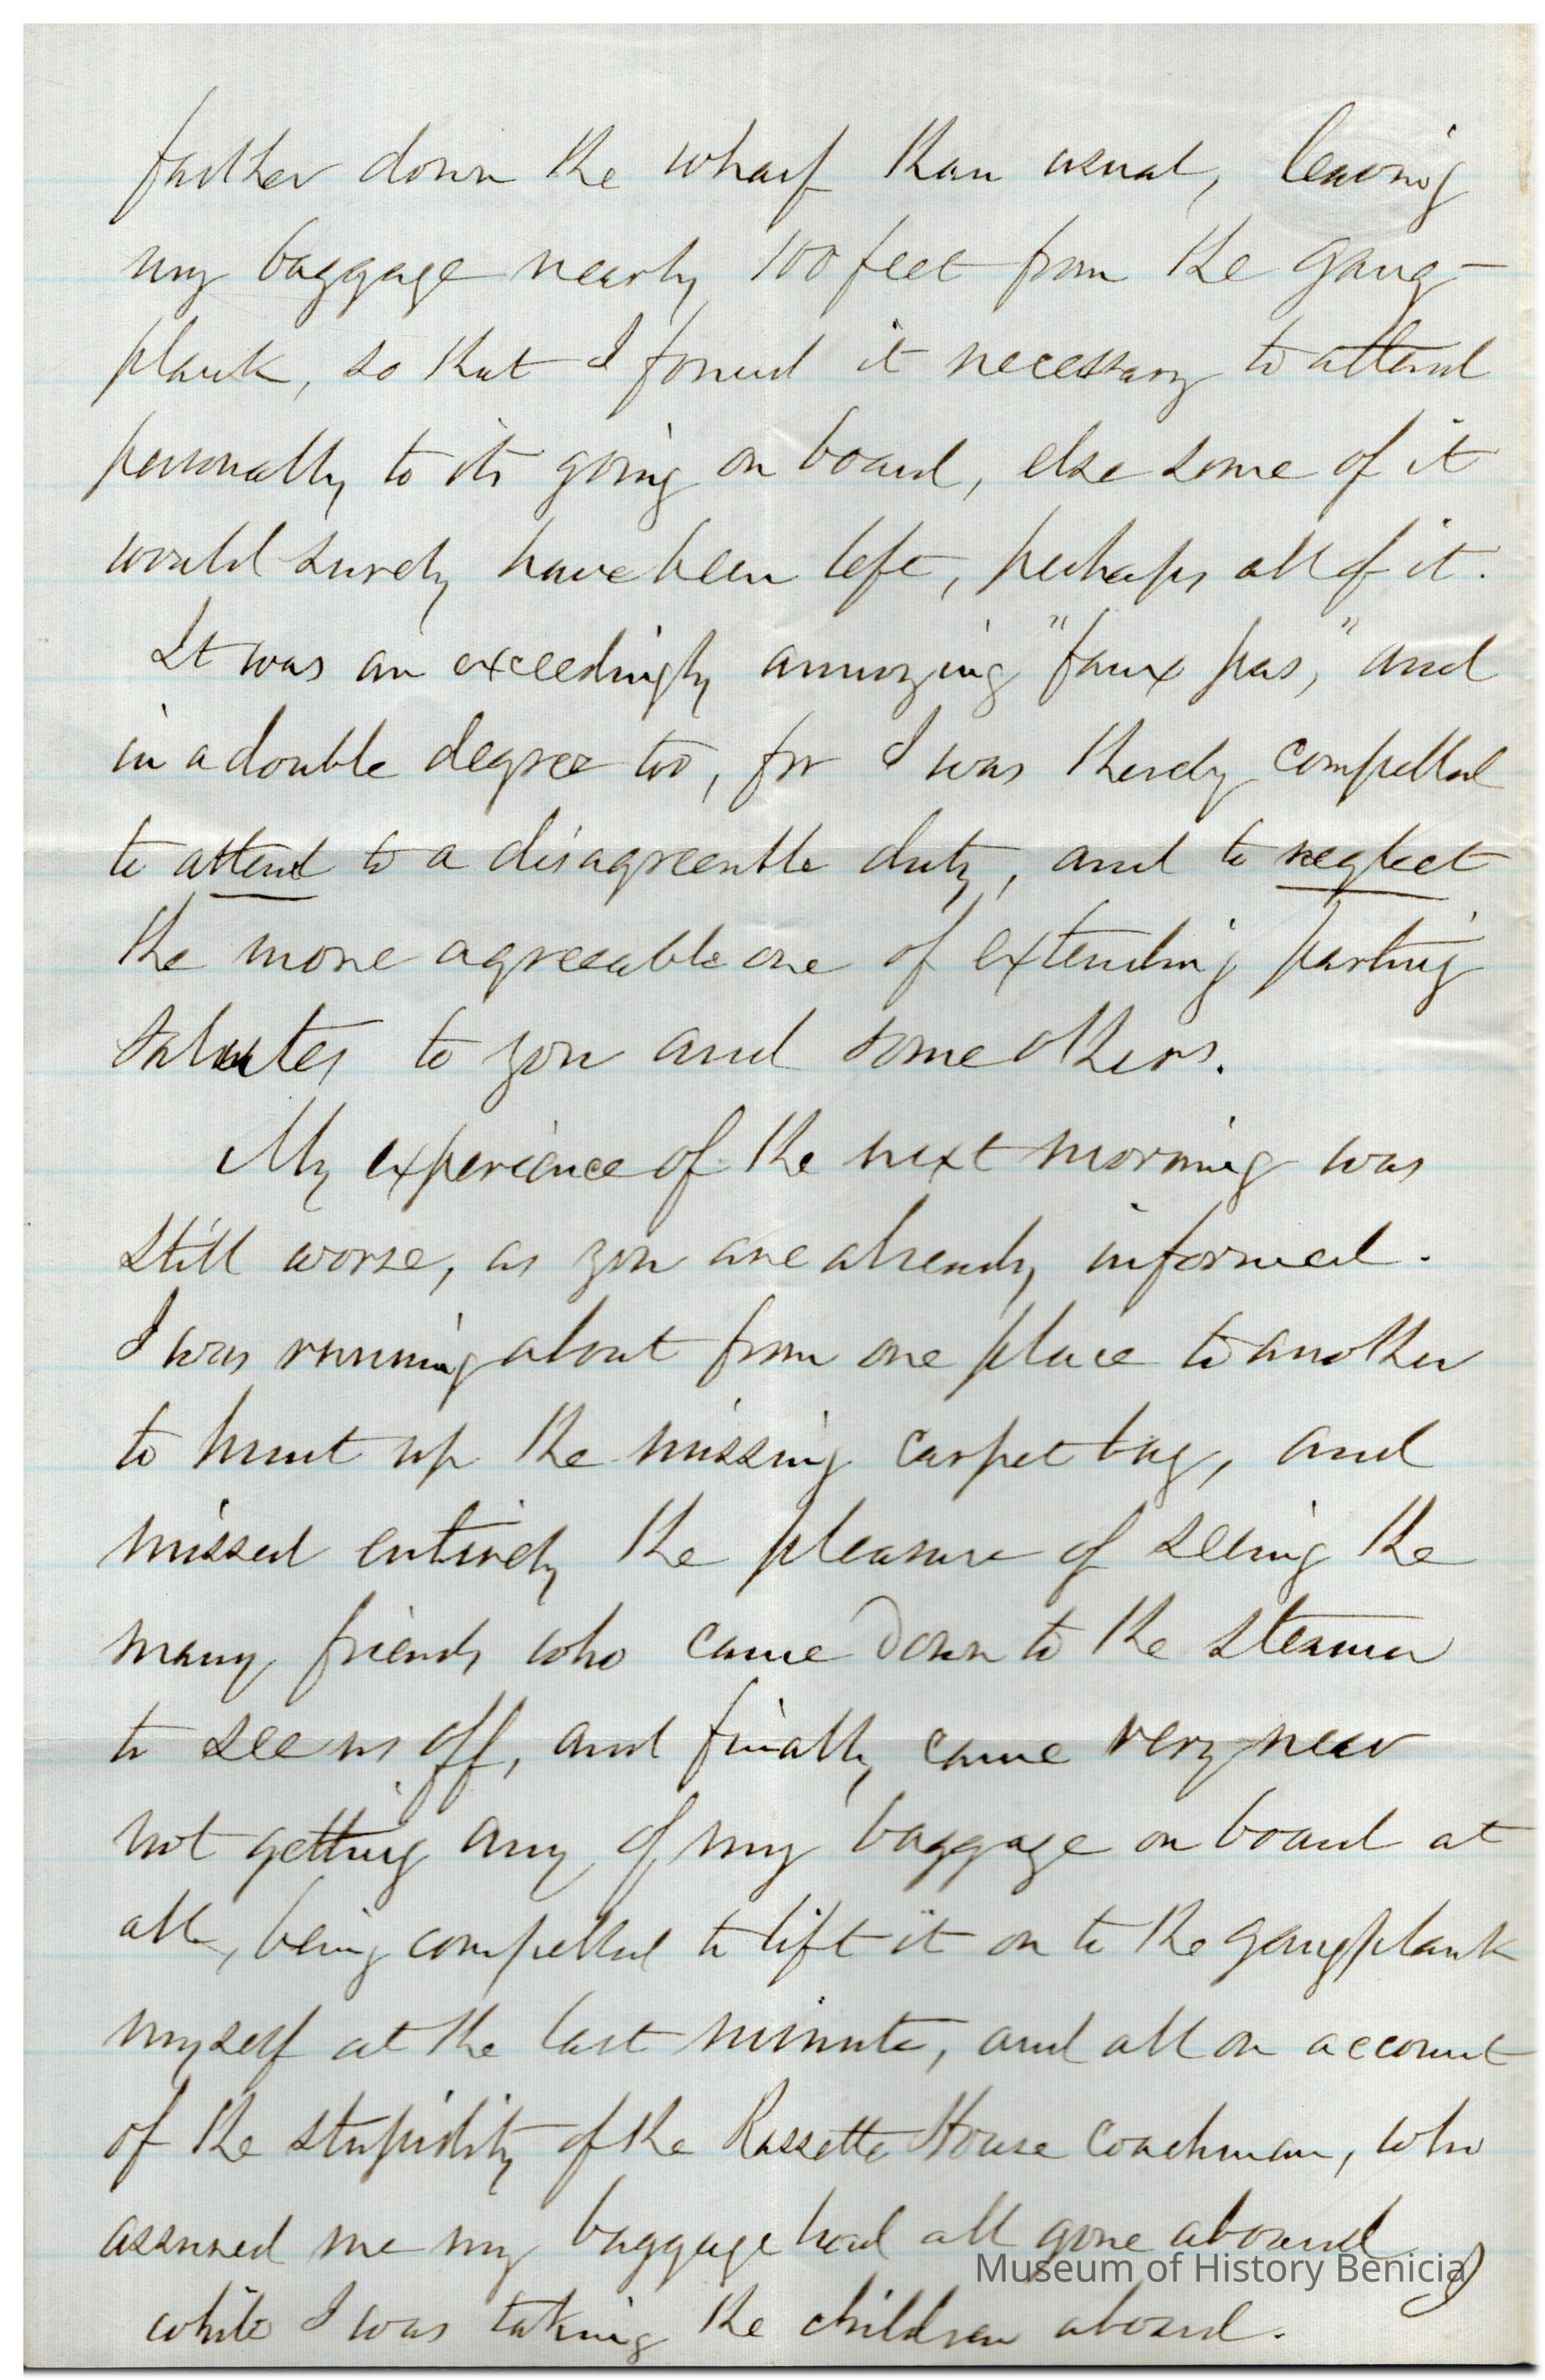 farther down the wharf than usual, leaving
my baggage nearly 100 feet from the gang-
plank, so that I found it necessary to attend
personally to its going on board, else some of it
would surely have been left, perhaps all of it.
It was an exceedingly annoying "faux pas," and
in a double degree too, for I was thereby compelled
to attend to a disagreeable duty, and to neglect
the more agreeable one of extending parting
salutes to you and some others.
My experience of the next morning was
still worse, as you are already informed.
I was running about from one place to another
to hunt up the missing carpet bag, and
missed entirely the pleasure of seeing the
many friends who came down to the steamer
to see us off, and finally came very near
not getting any of my baggage on board at
all, being compelled to lift it on to the gangplank
myself at the last minute, and all on account
of the stupidity of the Rassette House coachman, who
assured me my baggage had all gone aboard
while I was taking the children aboard.
Museum of History Benicia